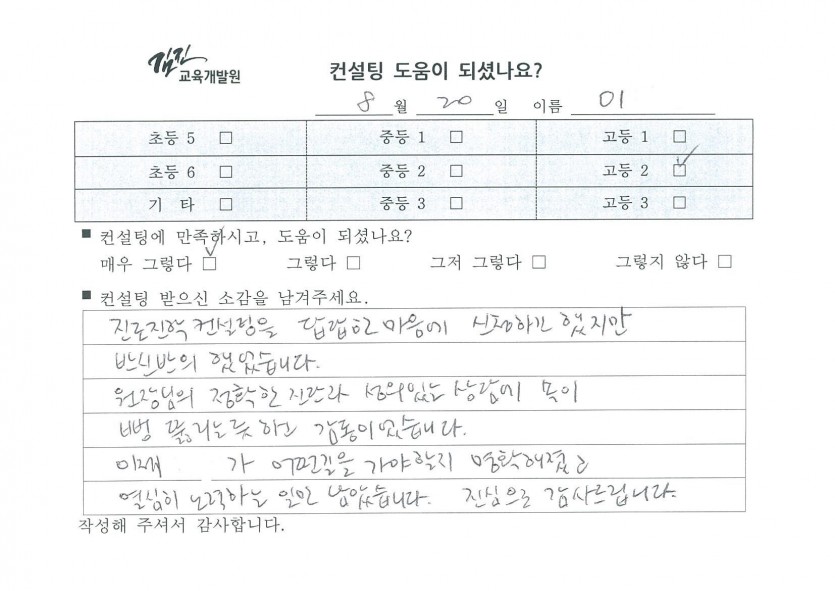 김진
교육개발원
컨설팅 도움이 되셨나요?
8 월 20 일 이름 이
초등 5 □ 중등 1 □ 고등 1 □
초등 6 □ 중등 2 □ 고등 2 □✓
기 타 □ 중등 3 □ 고등 3 □
■ 컨설팅에 만족하시고, 도움이 되셨나요?
매우 그렇다 □✓ 그렇다 □ 그저 그렇다 □ 그렇지 않다 □
■ 컨설팅 받으신 소감을 남겨주세요.
진로진학 컨설팅을 답답한 마음에 신청하긴 했지만
반신반의 했었습니다.
원장님의 정확한 진단과 성의있는 상담에 목이
뻥 뚫리는듯 하고 감동이었습니다.
이제 가 어떤길을 가야할지 명확해졌고
열심히 노력하는 일만 남았습니다. 진심으로 감사드립니다.
작성해 주셔서 감사합니다.